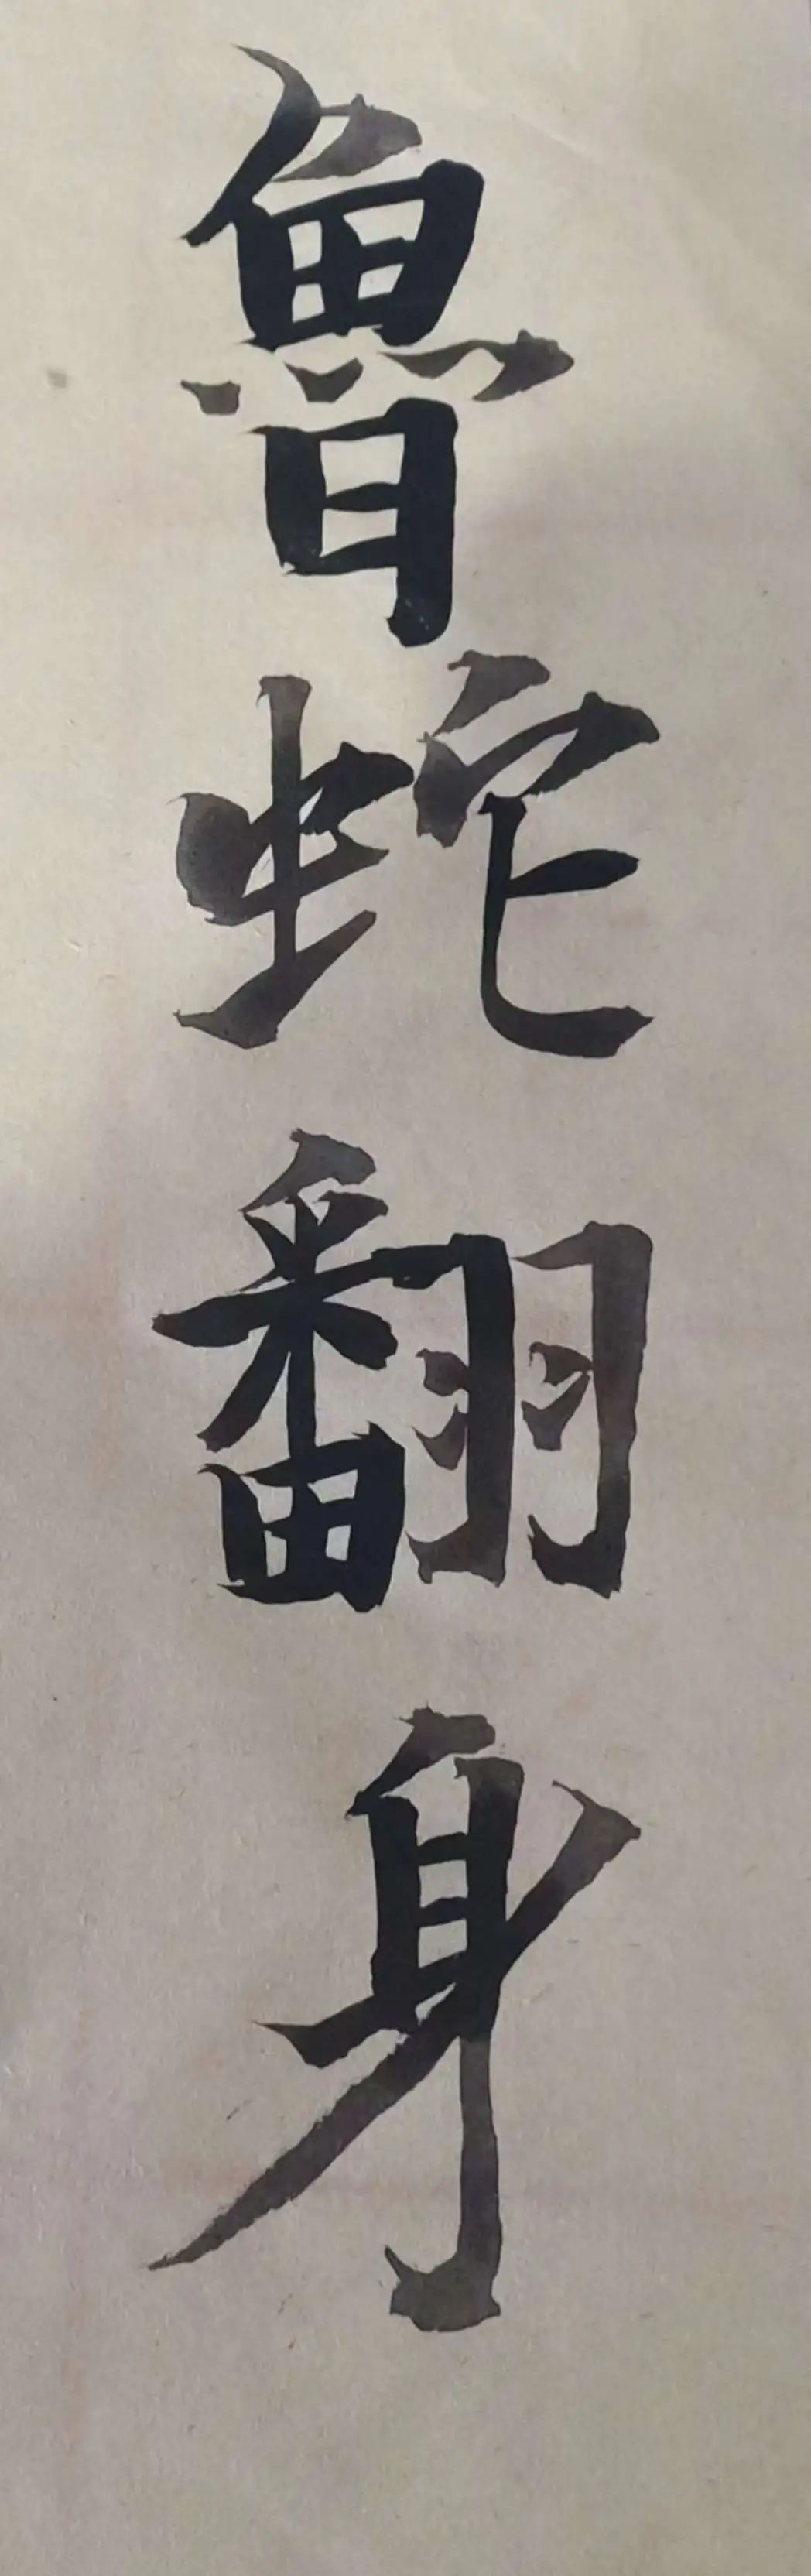 魯蛇翻身